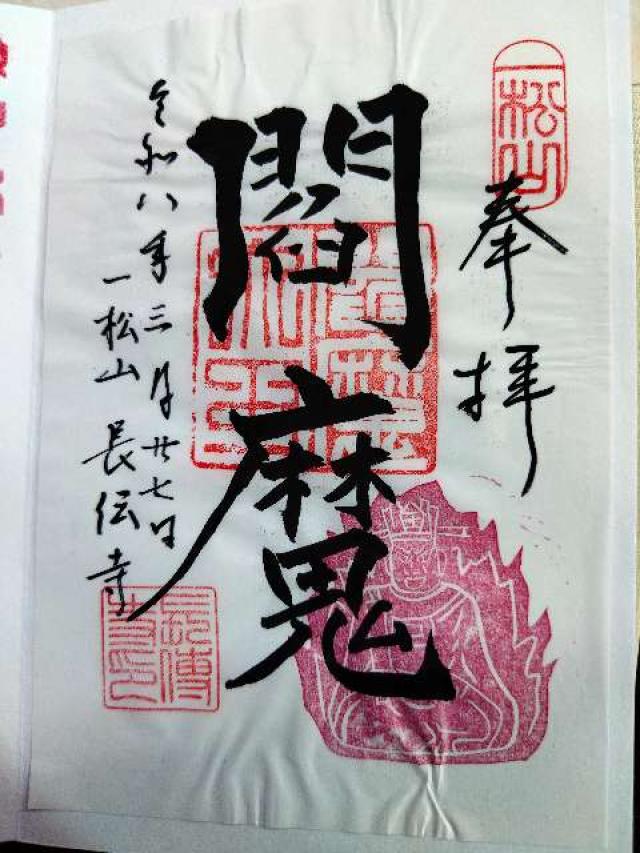 一松山
奉拝
閻魔
令和八年三月廿七日
一松山 長伝寺
長傳
寺印